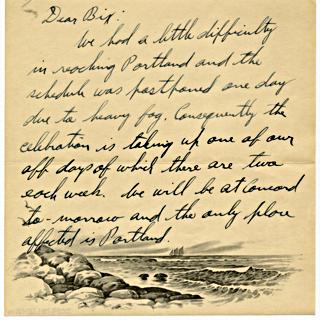 Dear Big:
We had a little difficulty
in reaching Portland and the
schedule was postponed one day
due to heavy fog. Consequently the
celebration is taking up one of our
off days of which there are two
each week. We will be at Concord
to-morrow and the only place
affected is Portland.